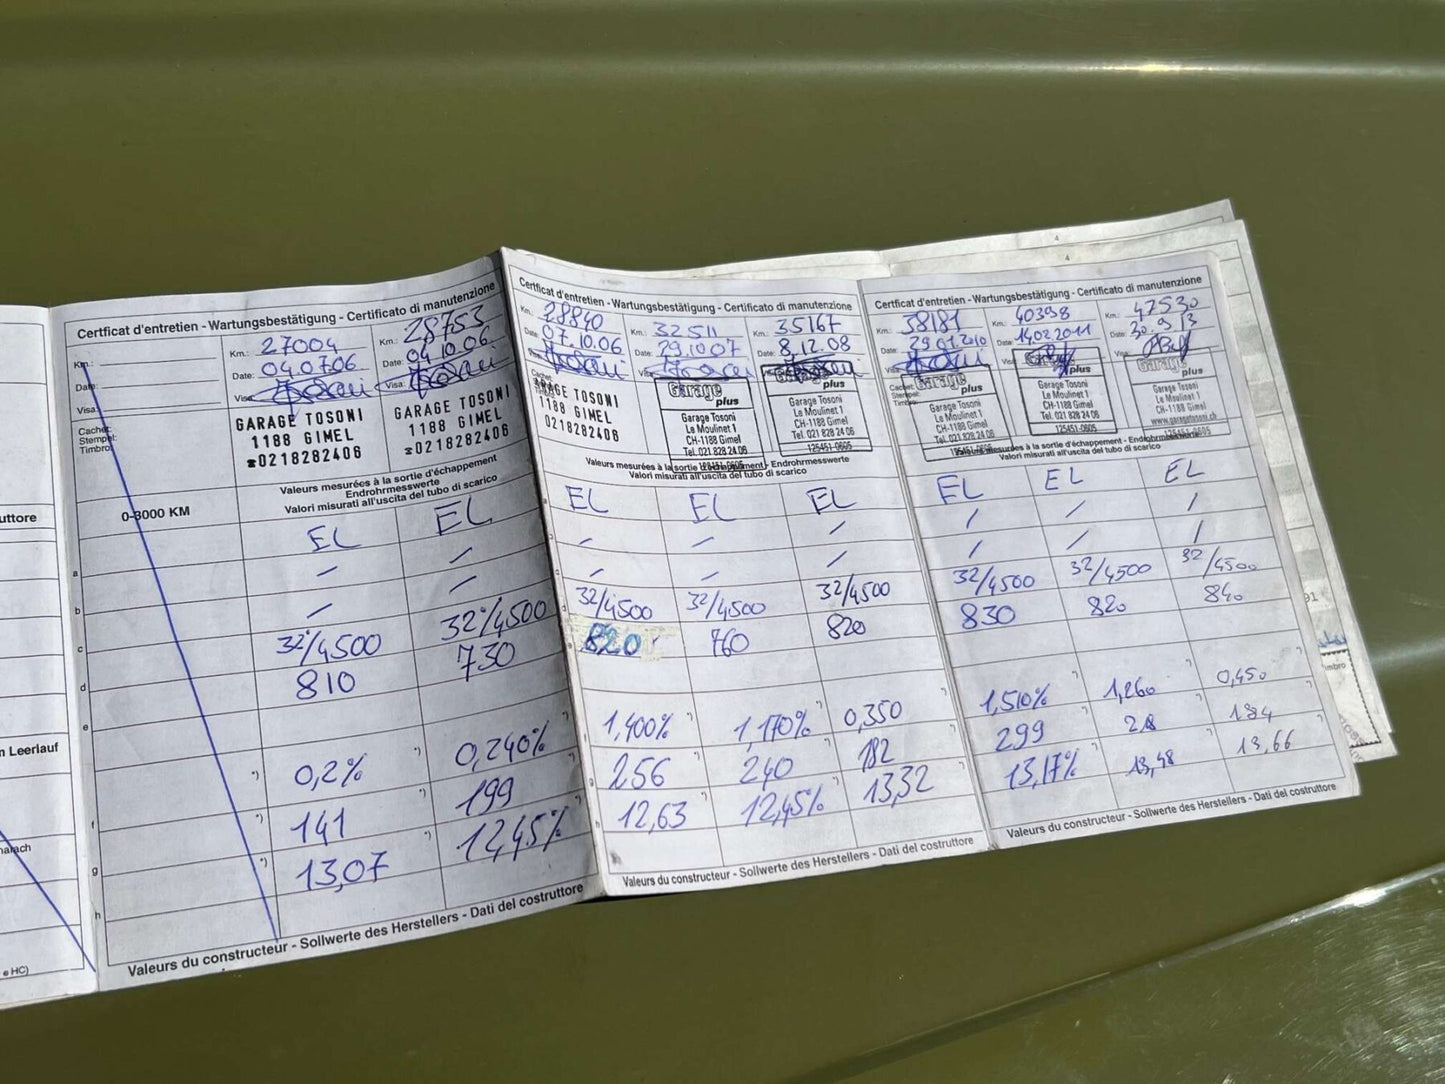 uttore
n Leerlauf
narach
e HC)
Certficat d'entretien - Wartungsbestätigung - Certificato di manutenzione
Km.:
Date:
Visa:
Cachet:
Stempel:
Timbro:
Km.: 27004
Date: 04.07.06
Visa:
GARAGE TOSONI
1188 GIMEL
☎0218282406
Km.: 28753
Date: 04.10.06.
Visa:
GARAGE TOSONI
1188 GIMEL
☎0218282406
Valeurs mesurées à la sortie d'échappement
Endrohrmesswerte
Valori misurati all'uscita del tubo di scarico
0-3000 KM
EL EL
a / /
b / /
c 32/4500 32/4500
d 810 730
e
f *) 0,2% *) 0,240% *)
g *) 141 *) 199
h *) 13,07 12,45%
Valeurs du constructeur - Sollwerte des Herstellers - Dati del costruttore
Certficat d'entretien - Wartungsbestätigung - Certificato di manutenzione
Km.: 28840
Date: 07.10.06
Visa:
Cachet:
GARAGE TOSONI
1188 GIMEL
0218282406
Km.: 32511
Date: 29.10.07
Visa:
Garage
plus
Garage Tosoni
Le Moulinet 1
CH-1188 Gimel
Tel. 021 828 24 06
125451-0605
Km.: 35167
Date: 8.12.08
Garage
plus
Garage Tosoni
Le Moulinet 1
CH-1188 Gimel
Tel. 021 828 24 06
125451-0605
Valeurs mesurées à la sortie d'échappement - Endrohrmesswerte
Valori misurati all'uscita del tubo di scarico
EL EL EL
/ / /
/ / /
32/4500 32/4500 32/4500
820 760 820
1,400% *) 1,170% *) 0,350 *)
256 *) 240 *) 182
12,63 *) 12,45% *) 13,32
Valeurs du constructeur - Sollwerte des Herstellers - Dati del costruttore
Certficat d'entretien - Wartungsbestätigung - Certificato di manutenzione
Km.: 38181
Date: 29.01.2010
Visa:
Cachet:
Stempel:
Timbro:
Garage
plus
Garage Tosoni
Le Moulinet 1
CH-1188 Gimel
Tel. 021 828 24 06
Km.: 40398
Date: 14.02.2011
Visa:
Garage
plus
Garage Tosoni
Le Moulinet 1
CH-1188 Gimel
Tel. 021 828 24 06
125451-0605
Km.: 47530
Date: 30.9.13
Visa:
Garage
plus
Garage Tosoni
Le Moulinet 1
CH-1188 Gimel
www.garagetosoni.ch
125451-0605
Valeurs mesurées à la sortie d'échappement - Endrohrmesswerte
Valori misurati all'uscita del tubo di scarico
EL EL EL
/ / /
/ / /
32/4500 32/4500 32/4500
830 820 840
1,510% *) 1,260 *) 0,450 *)
299 218 184
13,17% 13,48 13,66
Valeurs du constructeur - Sollwerte des Herstellers - Dati del costruttore
4
4